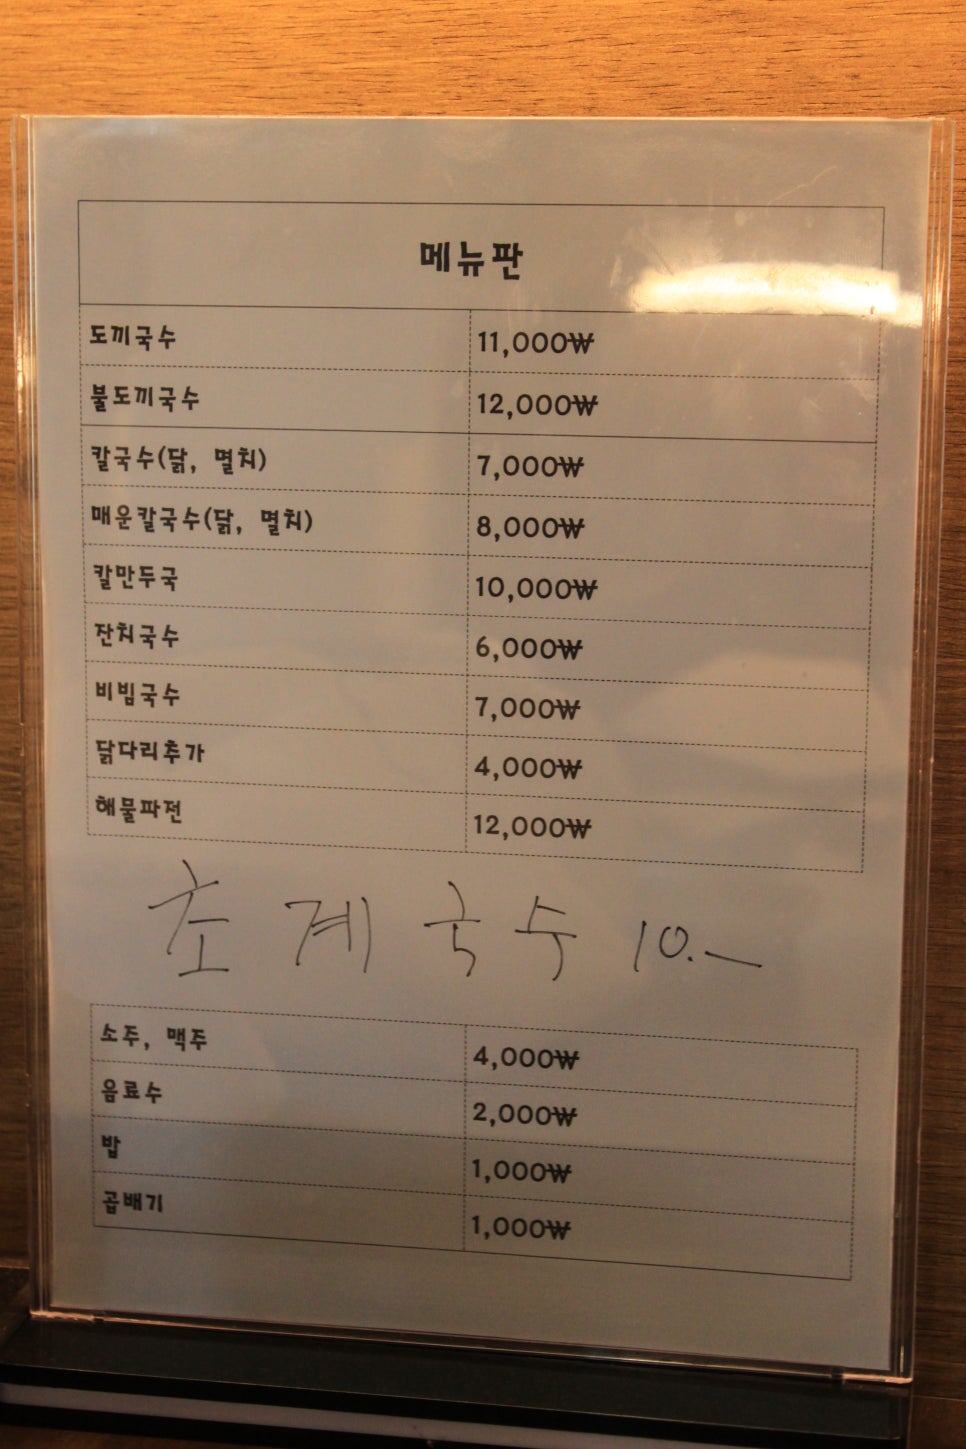 메뉴판
도끼국수 11,000₩
불도끼국수 12,000₩
칼국수(닭, 멸치) 7,000₩
매운칼국수(닭, 멸치) 8,000₩
칼만두국 10,000₩
잔치국수 6,000₩
비빔국수 7,000₩
닭다리추가 4,000₩
해물파전 12,000₩
초계국수 10.—
소주, 맥주 4,000₩
음료수 2,000₩
밥 1,000₩
곱배기 1,000₩